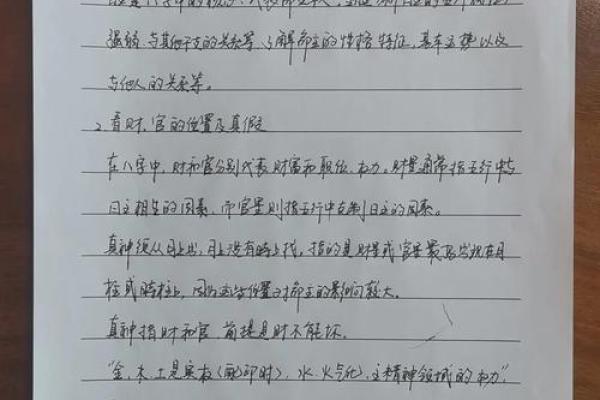 日主是八字中的核心, 代表命主本人, 通过分析日主的五行属性
强弱、与其他干支的关系等, 了解命主的性格特征, 基本运势以及
与他人的关系等。
2、看财、官的位置及真假
在八字中, 财和官分别代表财富和职位、权力。财星通常指五行中与
日主相生的因素, 而官星则指五行中克制日主的因素。
真神须从月上出, 月上没有时上找, 指的是财星或官星最容易出现在月
柱或时柱上, 因为这些位置对命主的影响较大。
真神指财和官, 前提是财不能坏。
"金、木、土是实权(配印时), 水、火气化, 主精神领域的权力",